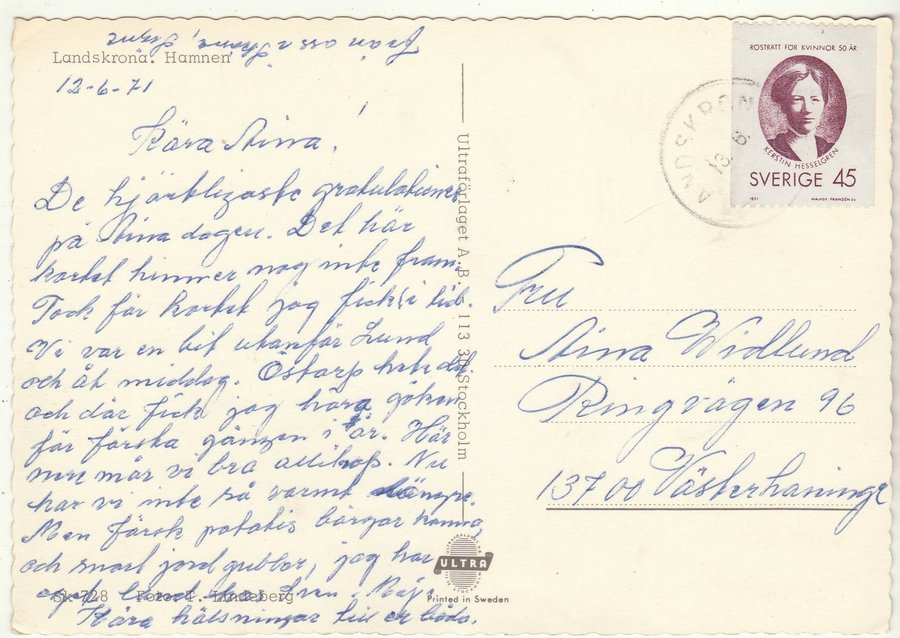 från oss i Skåne, Signe
Landskrona. Hamnen
12-6-71
Kära Stina!
De hjärtligaste gratulationer
på Stina dagen. Det här
kortet hinner nog inte fram.
Tack för kortet jag fick i
Vi var en bit utanför Lund
och åt middag. Östarps
och där fick jag höra göken
för första gången i år. Här
nere mår vi bra allihop. Nu
har vi inte så varmt längre.
Men färsk potatis börjar komma,
och snart jordgubbar, jag har
Sk 728 Foto: T. Lindeberg
Kära hälsningar till er båda.
Ultraförlaget A. B. 113 30 Stockholm
ULTRA
Printed in Sweden
LANDSKRONA
RÖSTRÄTT FÖR KVINNOR 50 ÅR
KERSTIN HESSELGREN
SVERIGE 45
1971 MAJVOR FRANZÉN SC
Fru
Stina Widlund
Ringvägen 96
13700 Västerhaninge